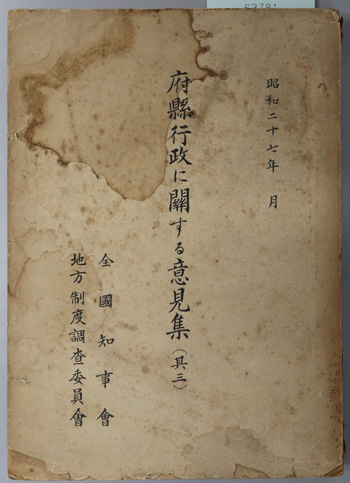 昭和二十七年 月
府縣行政に關する意見集（其三）
全國知事會
地方制度調查委員會